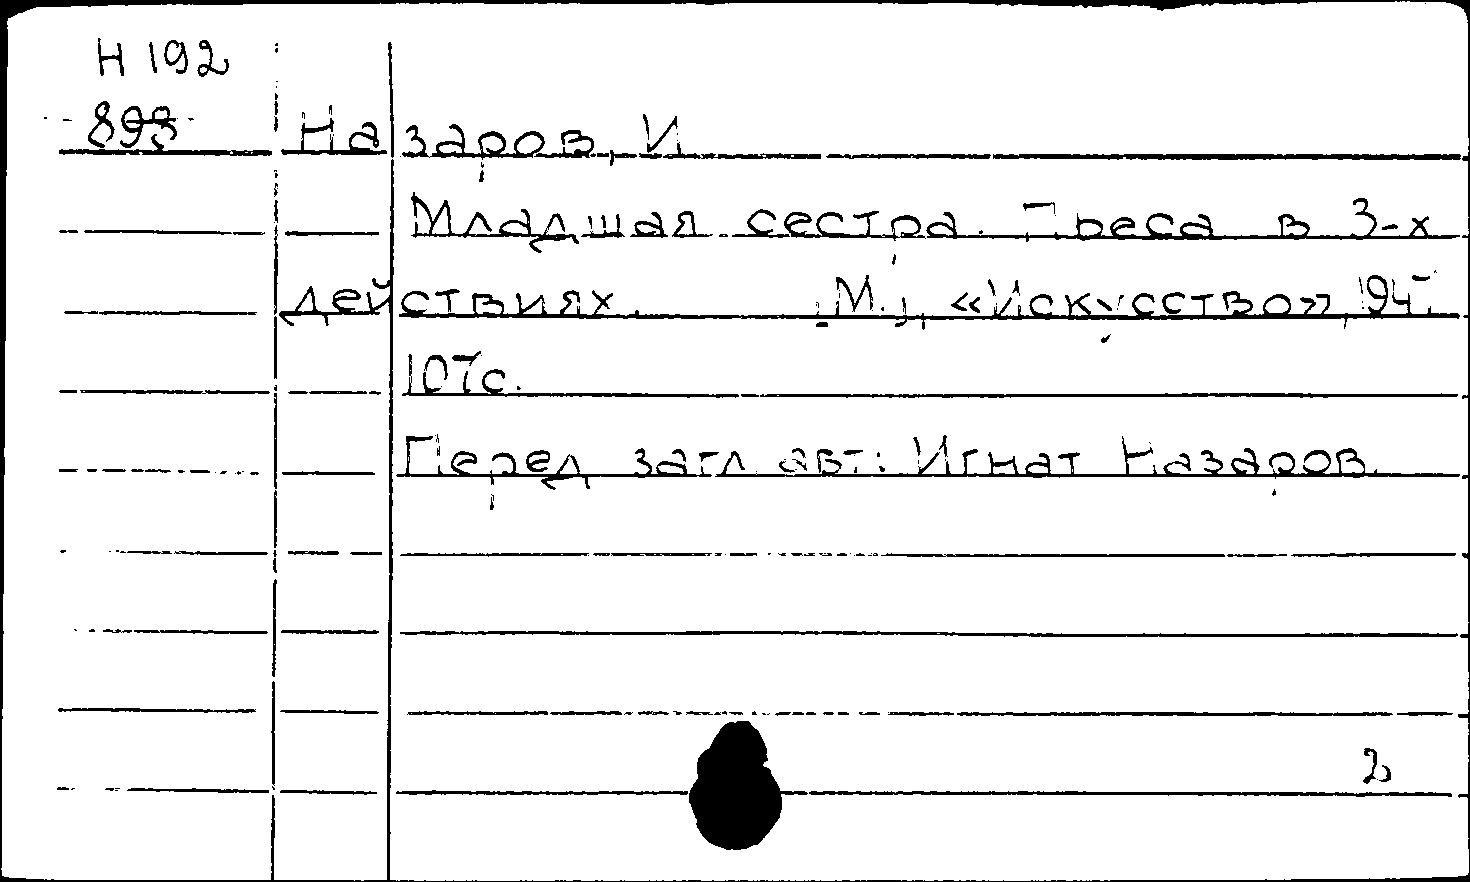 Н 192
893
Назаров, И
Младшая сестра. Пьеса в 3-х
действиях. М., «Искусство»,
107с.
Перед загл. авт.: Игнат Назаров.
2